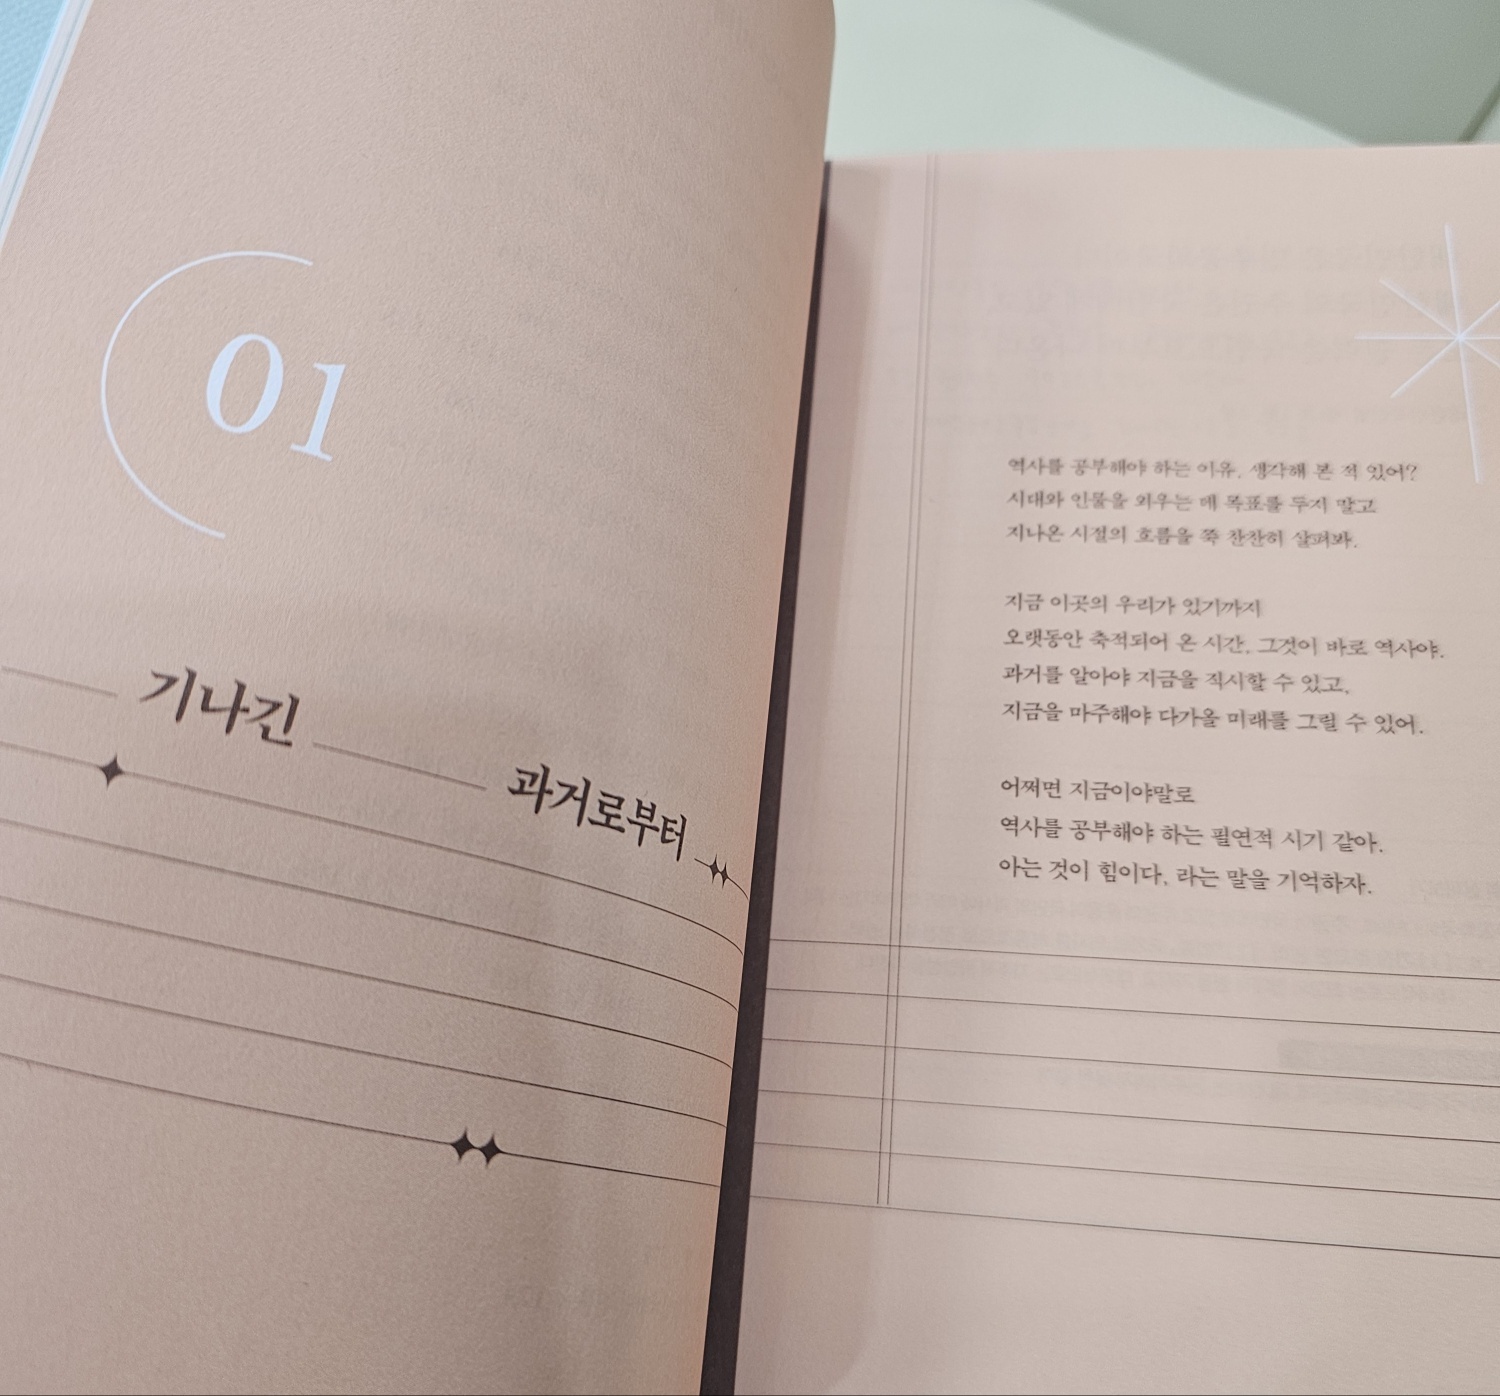 01
기나긴
과거로부터
역사를 공부해야 하는 이유, 생각해 본 적 있어?
시대와 인물을 외우는 데 목표를 두지 말고
지나온 시절의 흐름을 쭉 찬찬히 살펴봐.
지금 이곳의 우리가 있기까지
오랫동안 축적되어 온 시간, 그것이 바로 역사야.
과거를 알아야 지금을 직시할 수 있고,
지금을 마주해야 다가올 미래를 그릴 수 있어.
어쩌면 지금이야말로
역사를 공부해야 하는 필연적 시기 같아.
아는 것이 힘이다, 라는 말을 기억하자.